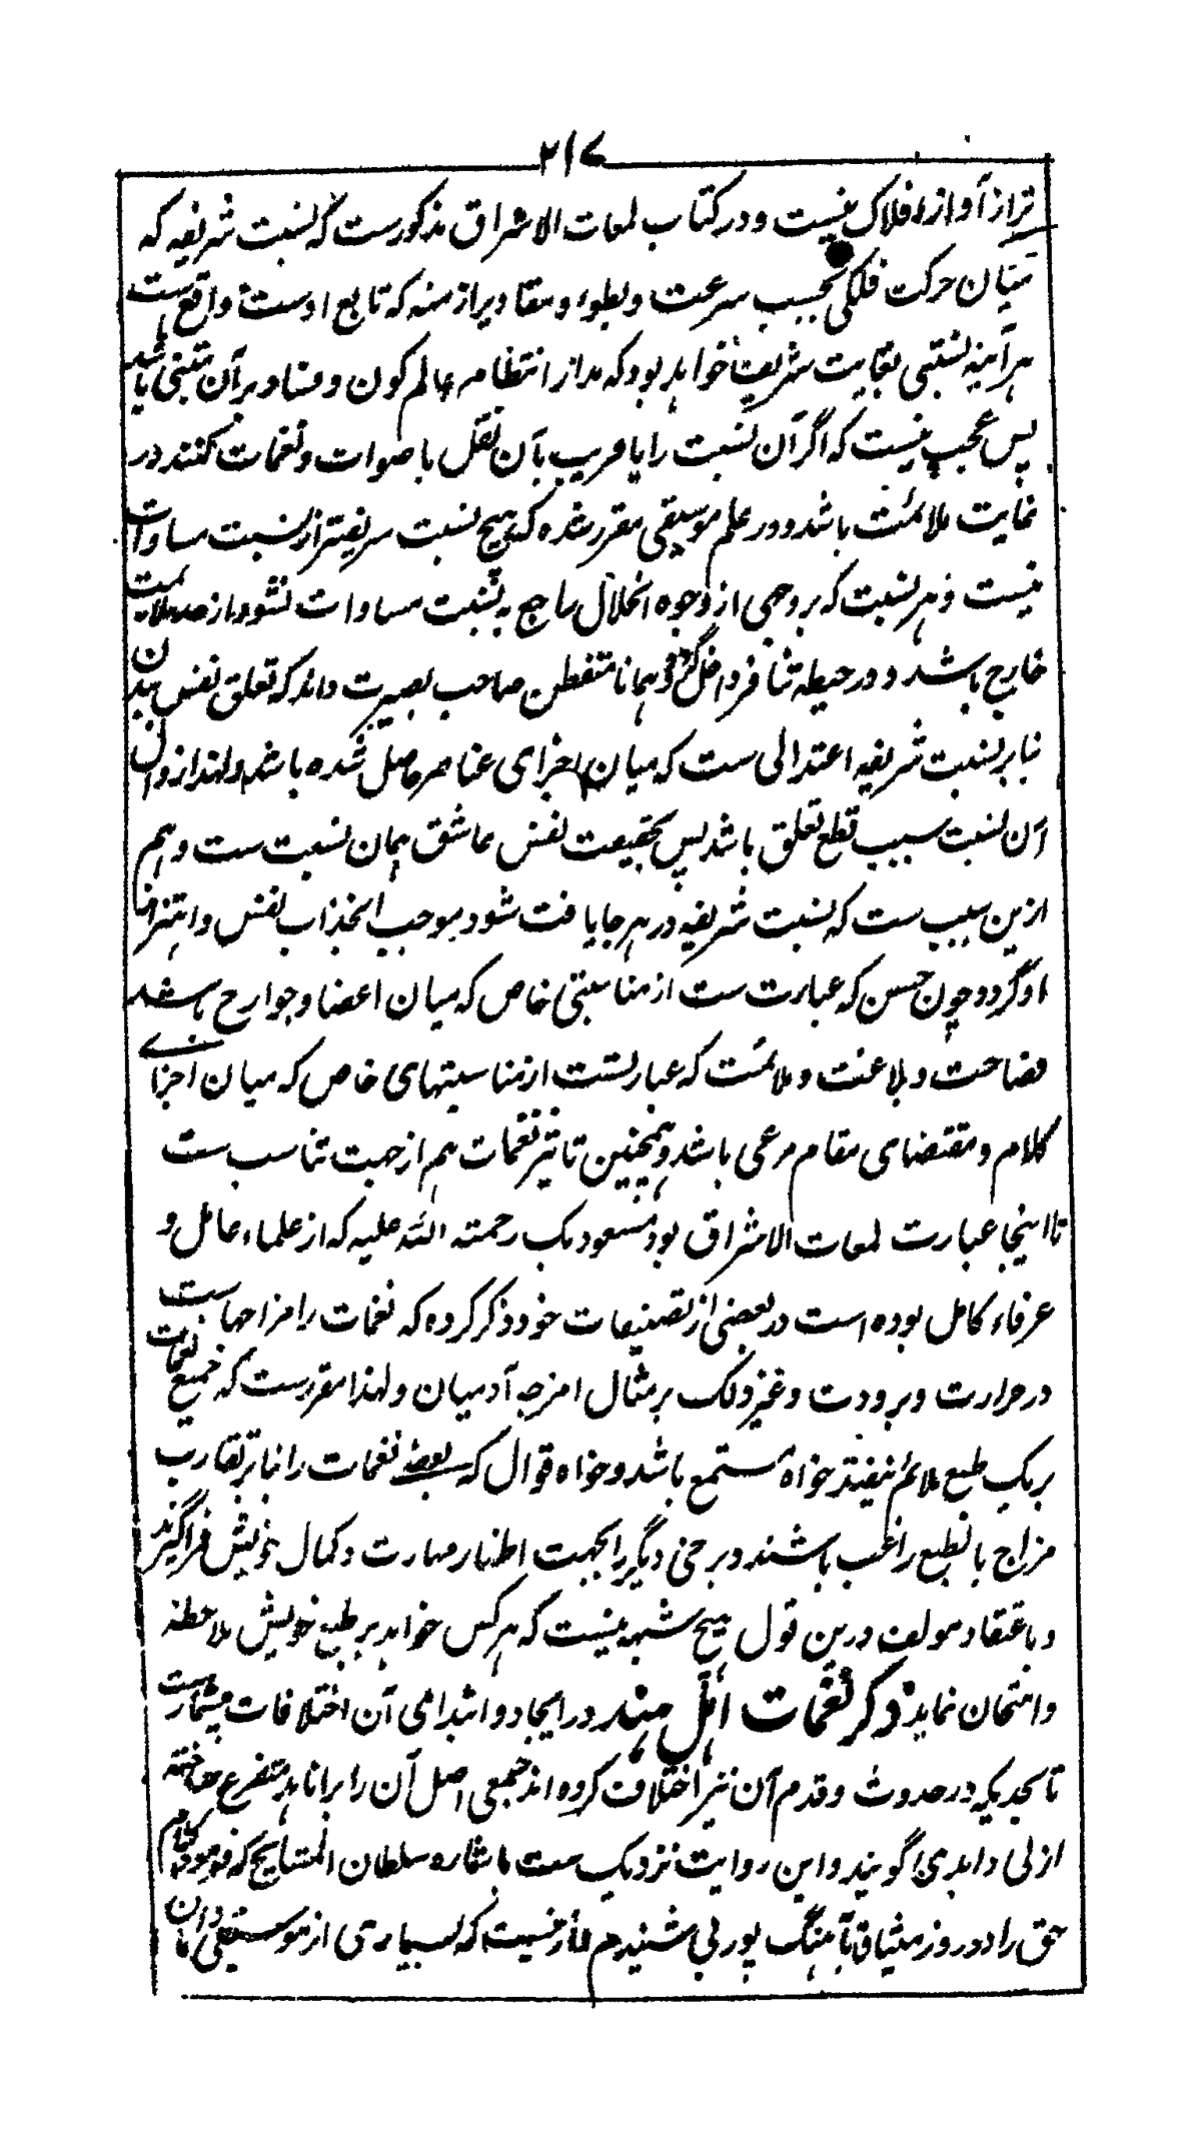 ۲۱۷
تر از آواز افلاک نیست و در کتاب لمعات الاشراق مذکورست که نسبت شریفه که
میان حرکت فلکی بحسب سرعت و بطوء و مقادیر ازمنه که تابع اوست واقع ست
هر آینه نسبتی بغایت شریف خواهد بود که مدار انتظام عالم کون و فساد بر آن مبتنی باشد
پس عجب نیست که اگر آن نسبت را یا قریب بآن نقل باصوات و نغمات کنند در
غایت ملائمت باشد و در علم موسیقی مقرر شده که هیچ نسبت شریفتر از نسبت مساوات
نیست و هر نسبت که بر وجهی از وجوه انحلال راجع به نسبت مساوات نشود از حد ملائمت
خارج باشد و در حیطه تنافر داخل گردد همانا متفطن صاحب بصیرت داند که تعلق نفس ببدن
بنا بر نسبت شریفه اعتدالی ست که میان اجزای عناصر حاصل شده باشد ولهذا زوال
آن نسبت سبب قطع تعلق باشد پس بحقیقت نفس عاشق همان نسبت ست و هم
ازین سبب ست که نسبت شریفه در هر جا یافت شود موجب انجذاب نفس و اهتزاز
او گردد چون حسن که عبارت ست از مناسبتی خاص که میان اعضا و جوارح باشد
فصاحت و بلاغت و ملائمت که عبارتست از مناسبتهای خاص که میان اجزای
کلام و مقتضای مقام مرعی باشد و همچنین تاثیر نغمات هم از جهت تناسب ست
تا اینجا عبارت لمعات الاشراق بود مسعود بک رحمته الله علیه که از علماء عامل و
عرفاء کامل بوده است در بعضی از تصنیفات خود ذکر کرده که نغمات را مزاجهاست
در حرارت و برودت و غیر ذلک بر مثال امزجه آدمیان و لهذا مقررست که جمیع نغمات
بر یک طبع ملائم نیفتد خواه مستمع باشد و خواه قوال که بعضے نغمات را بنا بر تقارب
مزاج بالطبع راغب باشند و برخی دیگر را بجهت اظهار مهارت و کمال خویش فراگیرند
و باعتقاد مولف درین قول هیچ شبهه نیست که هر کس خواهد بر طبع خویش ملاحظه
و امتحان نماید ذکر نغمات اهل هند در ایجاد و ابتدای آن اختلافات بیشمارست
تا بحدیکه در حدوث و قدم آن نیز اختلاف کرده اند جمعی اصل آن را برانا بد متفرع ساخته
ازلی و ابدی گویند و این روایت نزدیک ست باشاره سلطان المشایخ که فرمود کلام
حق را در روز میثاق بآهنگ پوربی شنیدم که بسیاری از موسیقی دانان